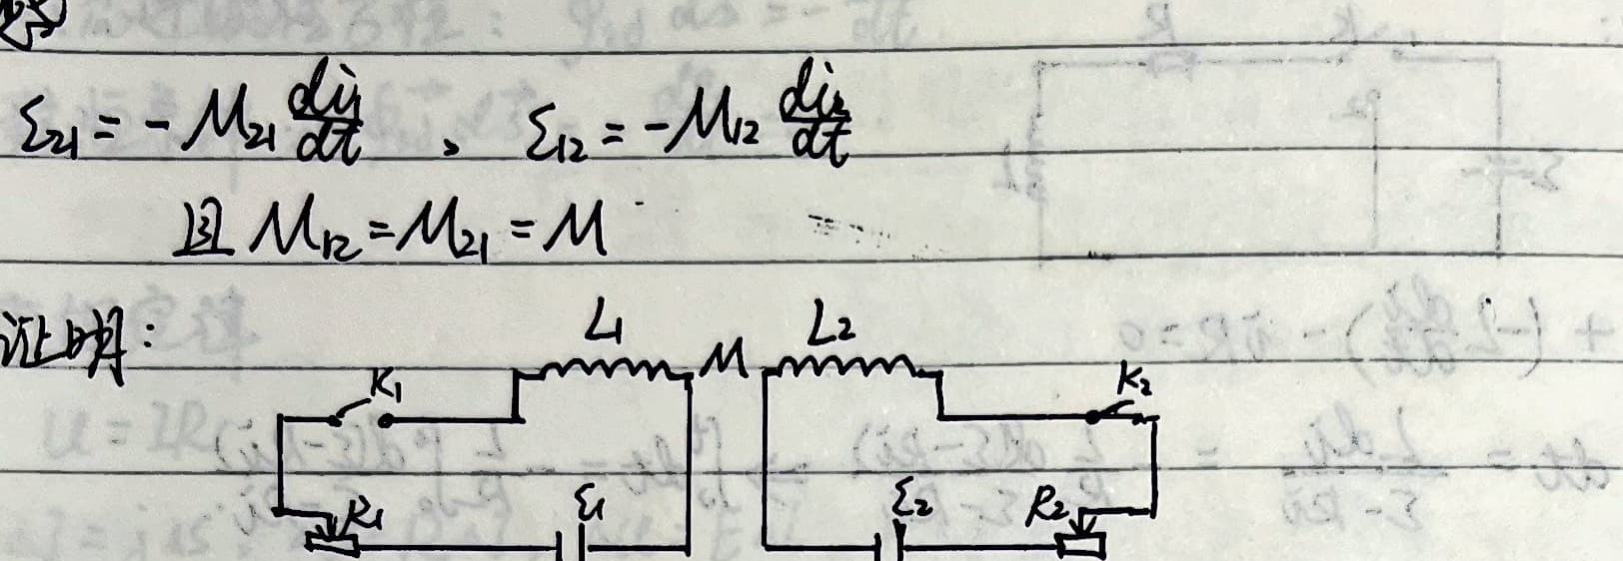 ε₂₁ = -M₂₁ di₁/dt 、 ε₁₂ = -M₁₂ di₂/dt
且 M₁₂ = M₂₁ = M
证明:
L₁ M L₂
K₁ K₂
R₁ ε₁ ε₂ R₂